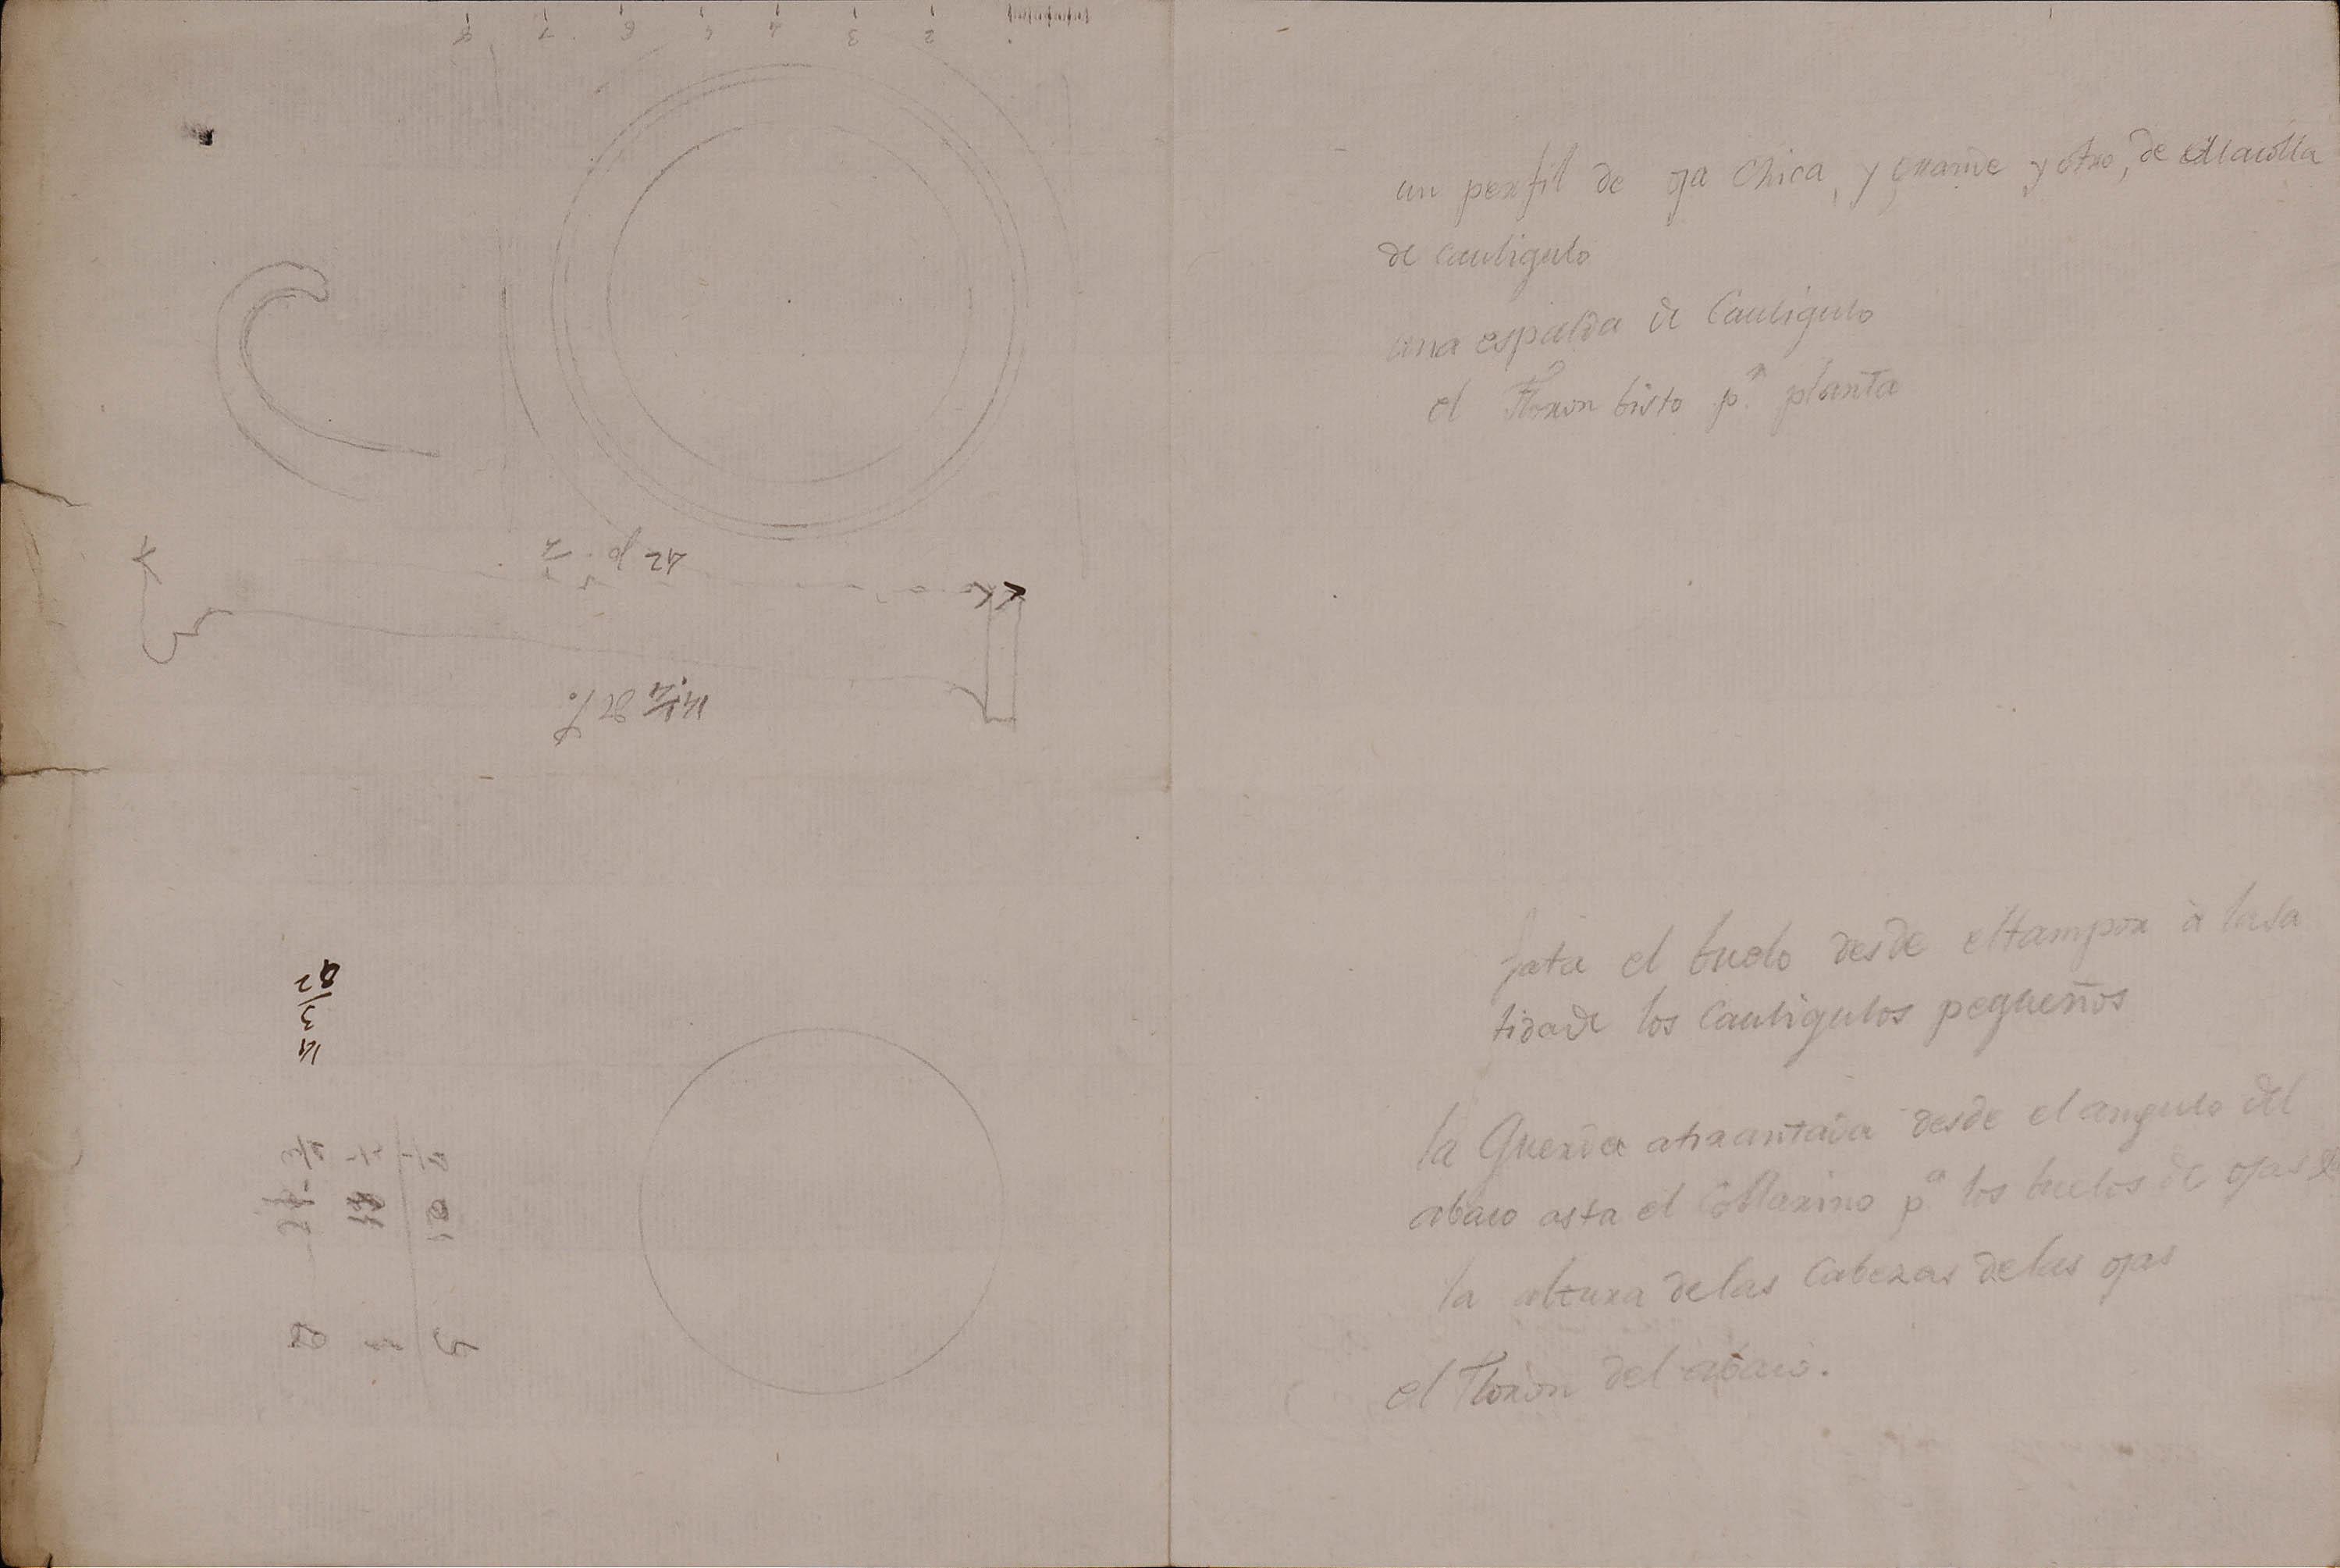 un perfil de oja chica, y grande y otro, de Macolla
de Cauligulo
una espalda de Cauligulo
el Floron bisto pr planta
fata el buelo desde el tampor à la sa
lida de los Cauligulos pequeños
la Querda atirantada desde el angulo del
abaco asta el Collarino pa los buelos de ojas
la altura de las Cabezas de las ojas
el Floron del abaco.
8 7 6 5 4 3 2
42 p.